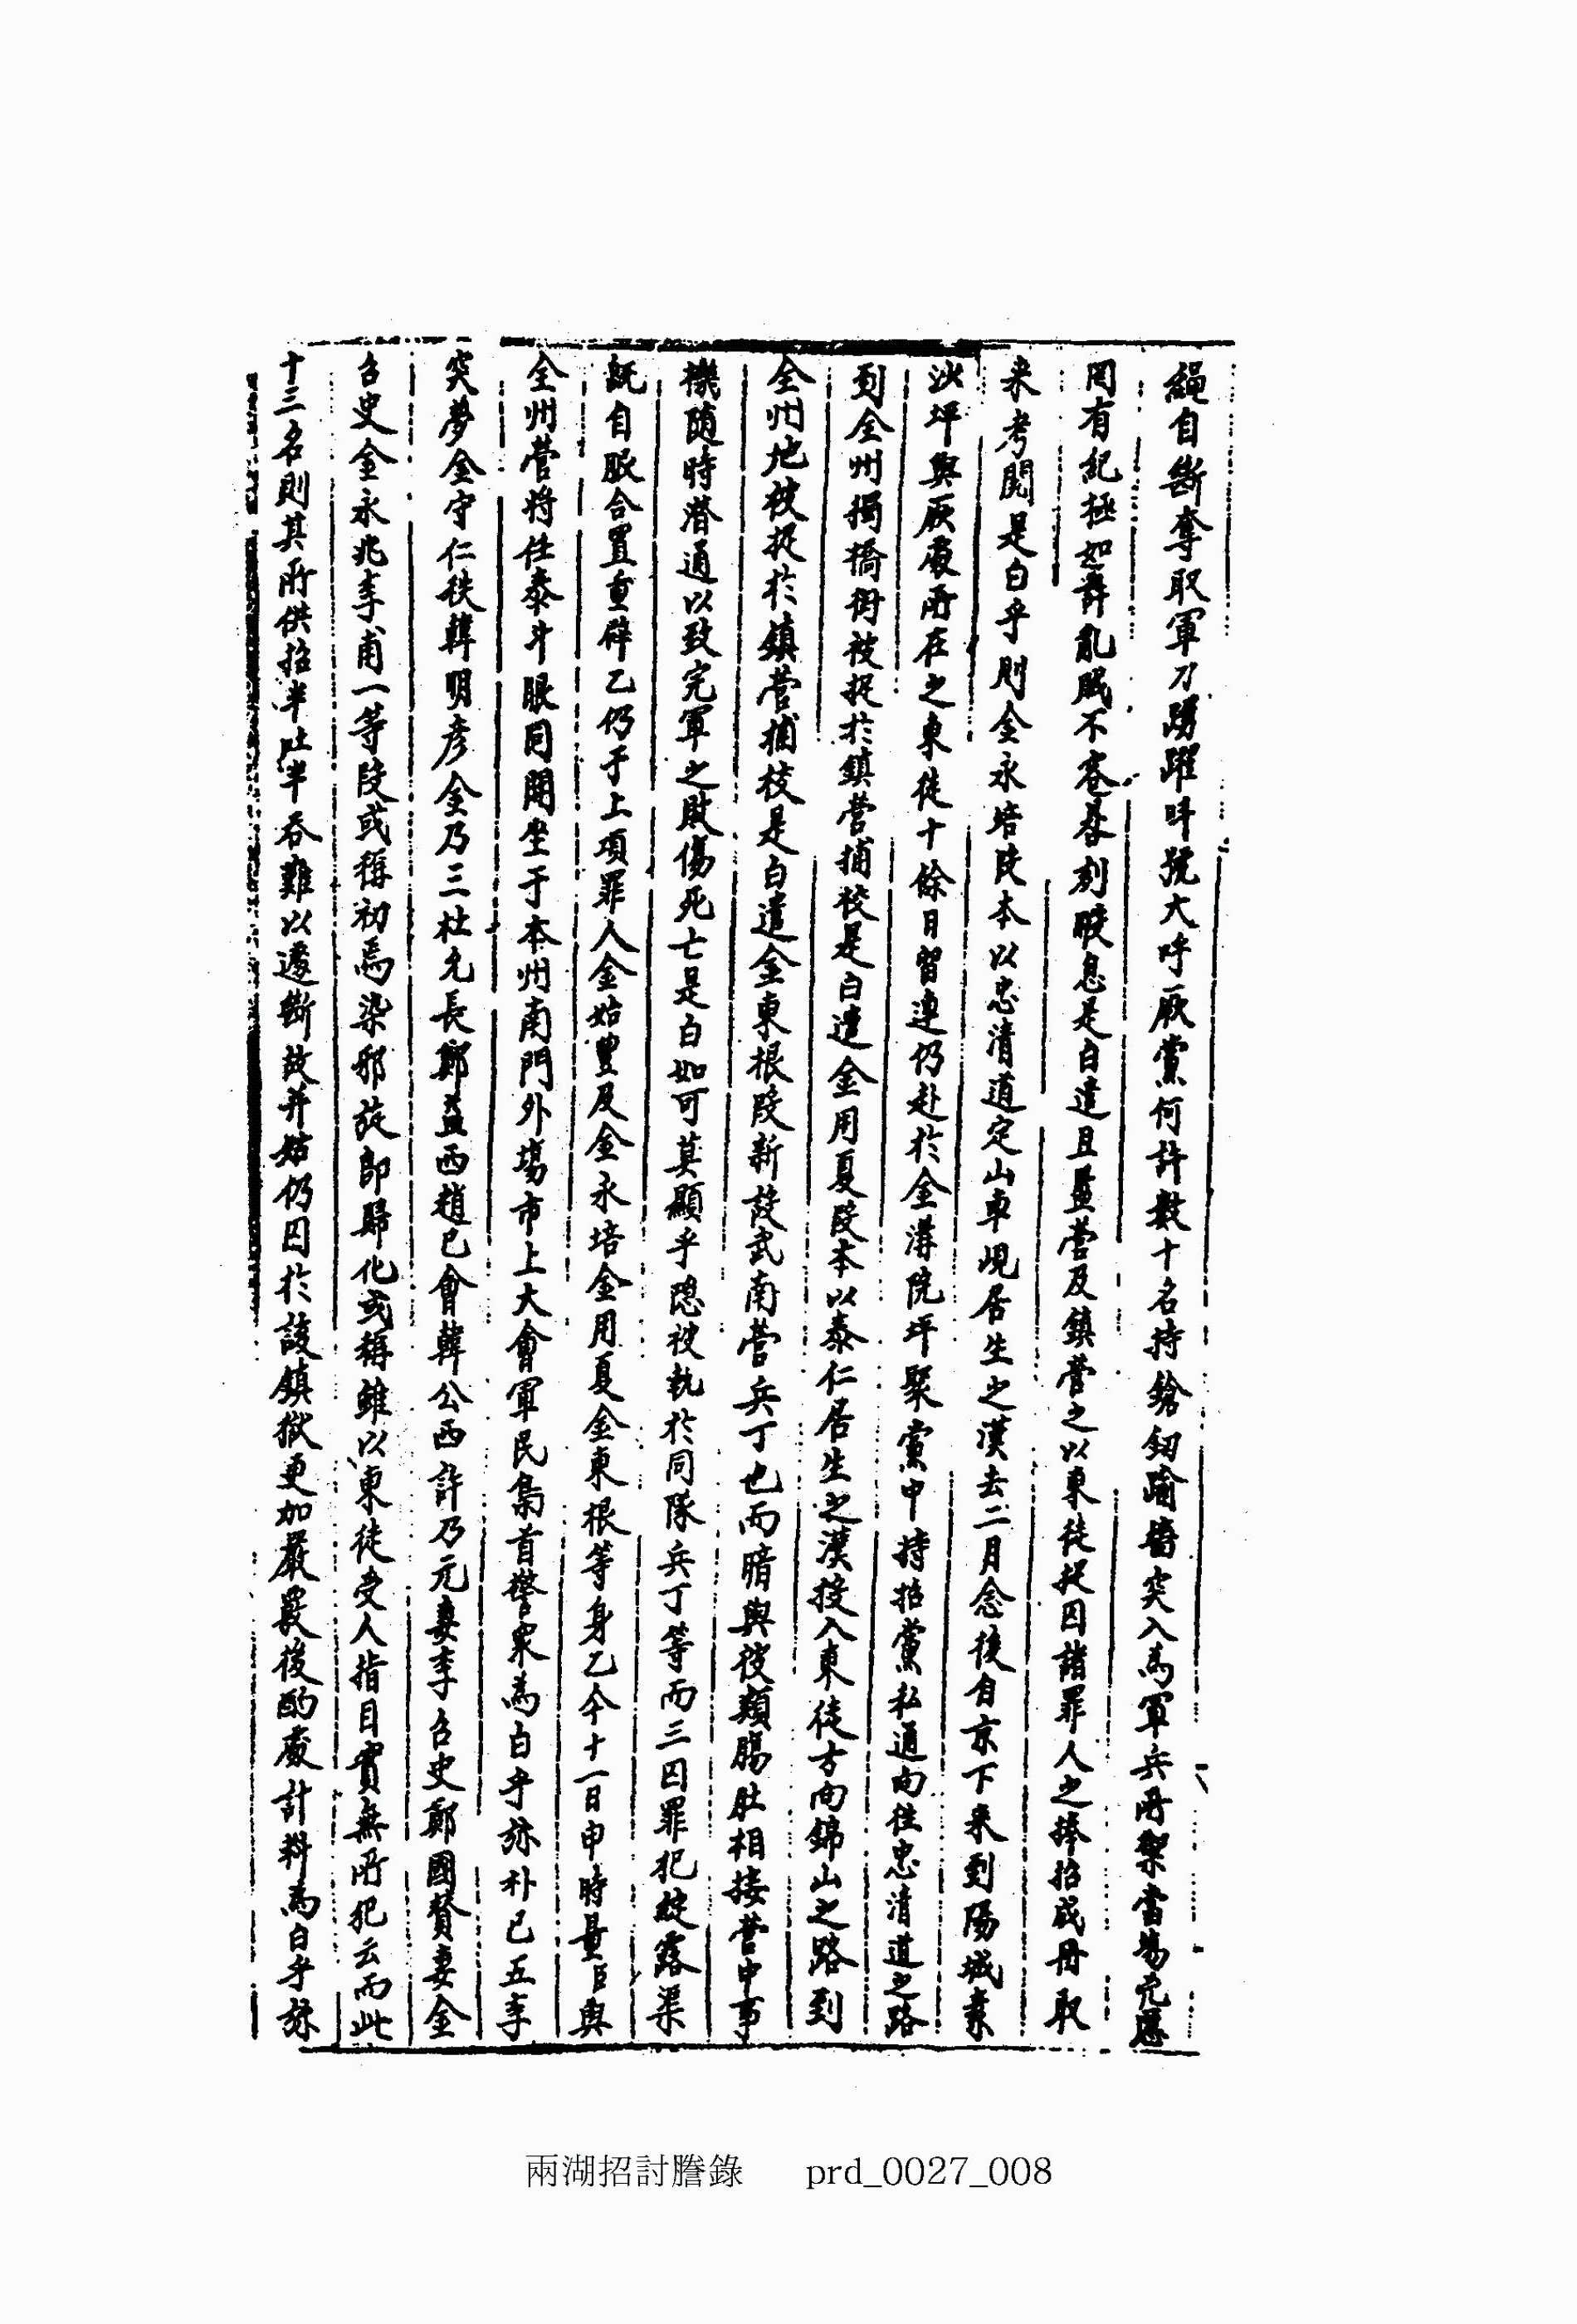 繩自斷奪取軍刀踴躍叫號大呼厥黨何許數十名持鎗釰踰墻突入爲軍兵所禦當場亢惡
罔有紀極如許亂賊不容晷刻暇息是白遣且監營及鎭營之以東徒捉囚諸罪人之捧招成冊取
来考閱是白乎則金永培段本以忠清道定山車峴居生之漢去二月念後自京下来到陽城素
沙坪與厥處所在之東徒十餘日習連仍赴於金溝院坪聚黨中持招黨私通向徃忠清道之路
到全州獨橋街被捉於鎭營捕校是白遣金用夏段本以泰仁居生之漢投入東徒方向錦山之路到
全州地被捉於鎭營捕校是白遣金東根段新設武南營兵丁也而暗與彼類膓肚相接營中事
機随時潛通以致完軍之敗傷死亡是白如可莫顯乎隠被執於同隊兵丁等而三囚罪犯綻露渠
既自服合置重辟乙仍于上項罪人金始豊及金永培金用夏金東根等身乙今十一日申時量臣與
全州營將任泰斗眼同開坐于本州南門外塲市上大會軍民梟首警衆爲白乎旀朴已五李
突夢金守仁秩韓明彦金乃三杜允長鄭益西趙已會韓公西許乃元妻李召史鄭國賛妻金
召史金永兆李甫一等段或稱初焉染邪旋即歸化或稱雖以東徒受人指目實無所犯云而此
十三名則其所供招半吐半呑難以遽斷故并姑仍囚於該鎭獄更加嚴覈後酌處計料爲白乎旀
兩湖招討謄錄 prd_0027_008